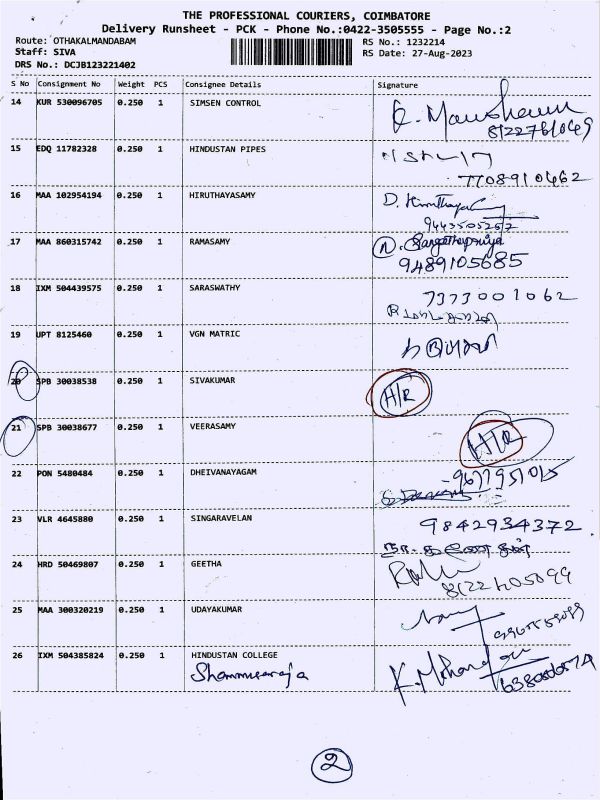 THE PROFESSIONAL COURIERS, COIMBATORE
Delivery Runsheet - PCK - Phone No.:0422-3505555 - Page No.:2
Route: OTHAKALMANDABAM
RS No.: 1232214
Staff: SIVA
RS Date: 27-Aug-2023
DRS No.: DCJB123221402
S No Consignment No Weight PCS Consignee Details Signature
14 KUR 530096705 0.250 1 SIMSEN CONTROL
15 EDQ 11782328 0.250 1 HINDUSTAN PIPES
7708910462
16 MAA 102954194 0.250 1 HIRUTHAYASAMY
9443505257
17 MAA 860315742 0.250 1 RAMASAMY
9489105685
18 IXM 504439575 0.250 1 SARASWATHY 7373001062
19 UPT 8125460 0.250 1 VGN MATRIC
20 SPB 30038538 0.250 1 SIVAKUMAR H/R
21 SPB 30038677 0.250 1 VEERASAMY H/R
22 PON 5480484 0.250 1 DHEIVANAYAGAM
23 VLR 4645880 0.250 1 SINGARAVELAN 9842934372
24 HRD 50469807 0.250 1 GEETHA
25 MAA 300320219 0.250 1 UDAYAKUMAR
26 IXM 504385824 0.250 1 HINDUSTAN COLLEGE
2